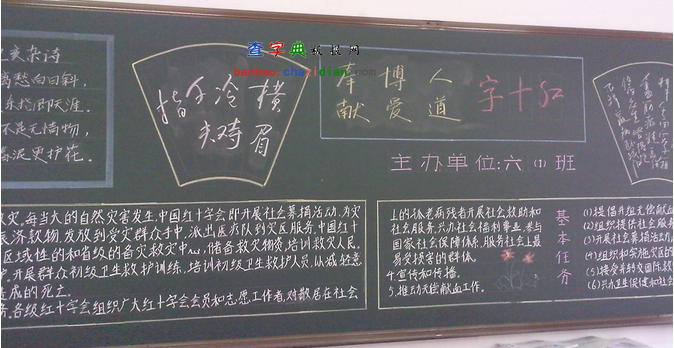 查字典板报网
banbao.chazidian.com
亥杂诗
离愁白日斜，
东指即天涯。
不是无情物，
春泥更护花。
横眉冷
对千夫指
人道
博爱
奉献
红十字
主办单位：六（1）班
救灾，每当大的自然灾害发生，中国红十字会即开展社会募捐活动，为灾
赈济款物，发放到受灾群众手中，派出医疗队到灾区服务，中国红十
区域性的和省级的备灾救灾中心，储备救灾物资，培训救灾人民。
护，开展群众初级卫生救护训练，培训初级卫生救护人员，从减轻意
造成的死亡。
务，各级红十字会组织广大红十字会会员和志愿工作者，对散居在社会
上的孤老病残者开展社会救助和
社会服务，兴办社会福利事业，参与
国家社会保障体系，服务社会上最
易受损害的群体。
4.宣传和传播。
5.推动无偿献血工作。
基本任务
(1)提倡并组无偿献血
(2)组织提供社会服务
(3)开展社会募捐活动，
(4)组织和实施灾区的
(5)接受并转交国际救
(6)兴办卫生保健和社会